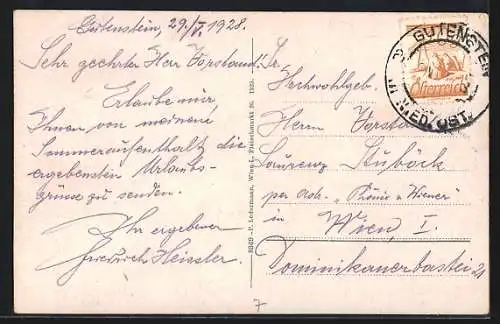 Gutenstein, 29./V. 1928.
Sehr geehrter Herr Vorstand!
Erlaube mir
Ihnen von meinem
Sommeraufenthalt die
ergebensten Urlaubs-
grüsse zu senden.
Ihr ergebener
Heissler.
8949 - P. Ledermann, Wien I., Fleischmarkt 1925.
Sr.
Hochwohlgeb.
Herrn Vorstand
Laurenz Stuböck
per Adr. „Phönix Wiener"
in Wien I.
Dominikanerbastei 21
GUTENSTEIN
NIED. ÖST.
Österreich
7